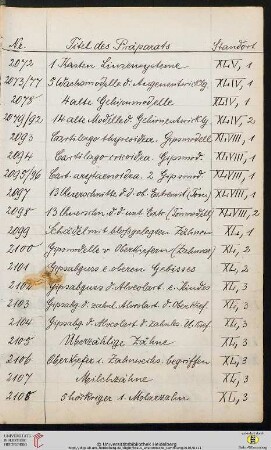 Nr. Titel des Präparats Standort
2072 1 Kasten Linsensysteme XLIV, 1
2073/77 5 Wachsmodelle d. Augenentwicklg XLIV, 1
2078 4 alte Gehirnmodelle XLIV, 1
2079/92 14 alte Modelle d. Gehirnentwicklg XLIV, 2
2093 Cartilago thyreoidea Gipsmodell XLVIII, 1
2094 Cartilago cricoidea Gipsmod. XLVIII, 1
2095/96 Cart. arytaenoidea 2 Gipsmod XLVIII, 1
2097 13 Querschnitte d. d. ob. Extremit. XLVIII, 1
2098 13 d. d. unt. Extr. XLVIII, 2
2099 Schädel mit blosgelegten Zähnen XL, 1
2100 Gipsmodell v. Oberkiefern XL, 2
2101 Gipsabguss e. oberen Gebisses XL, 2
2102 Gipsabguss d. Alveolart. e. Kindes XL, 3
2103 Gipsabg. d. zahnl. Alveolart. d. Oberkief XL, 3
2104 Gipsabg. d. Alveolart. d. zahnlos. U.kief XL, 3
2105 Überzählige Zähne XL, 3
2106 Oberkiefer i. Zahnwechs. begriffen XL, 3
2107 Milchzähne XL, 3
2108 5 höckriger 1 Molarzahn XL, 3
UNIVERSITÄTS-
BIBLIOTHEK
HEIDELBERG
© Universitätsbibliothek Heidelberg